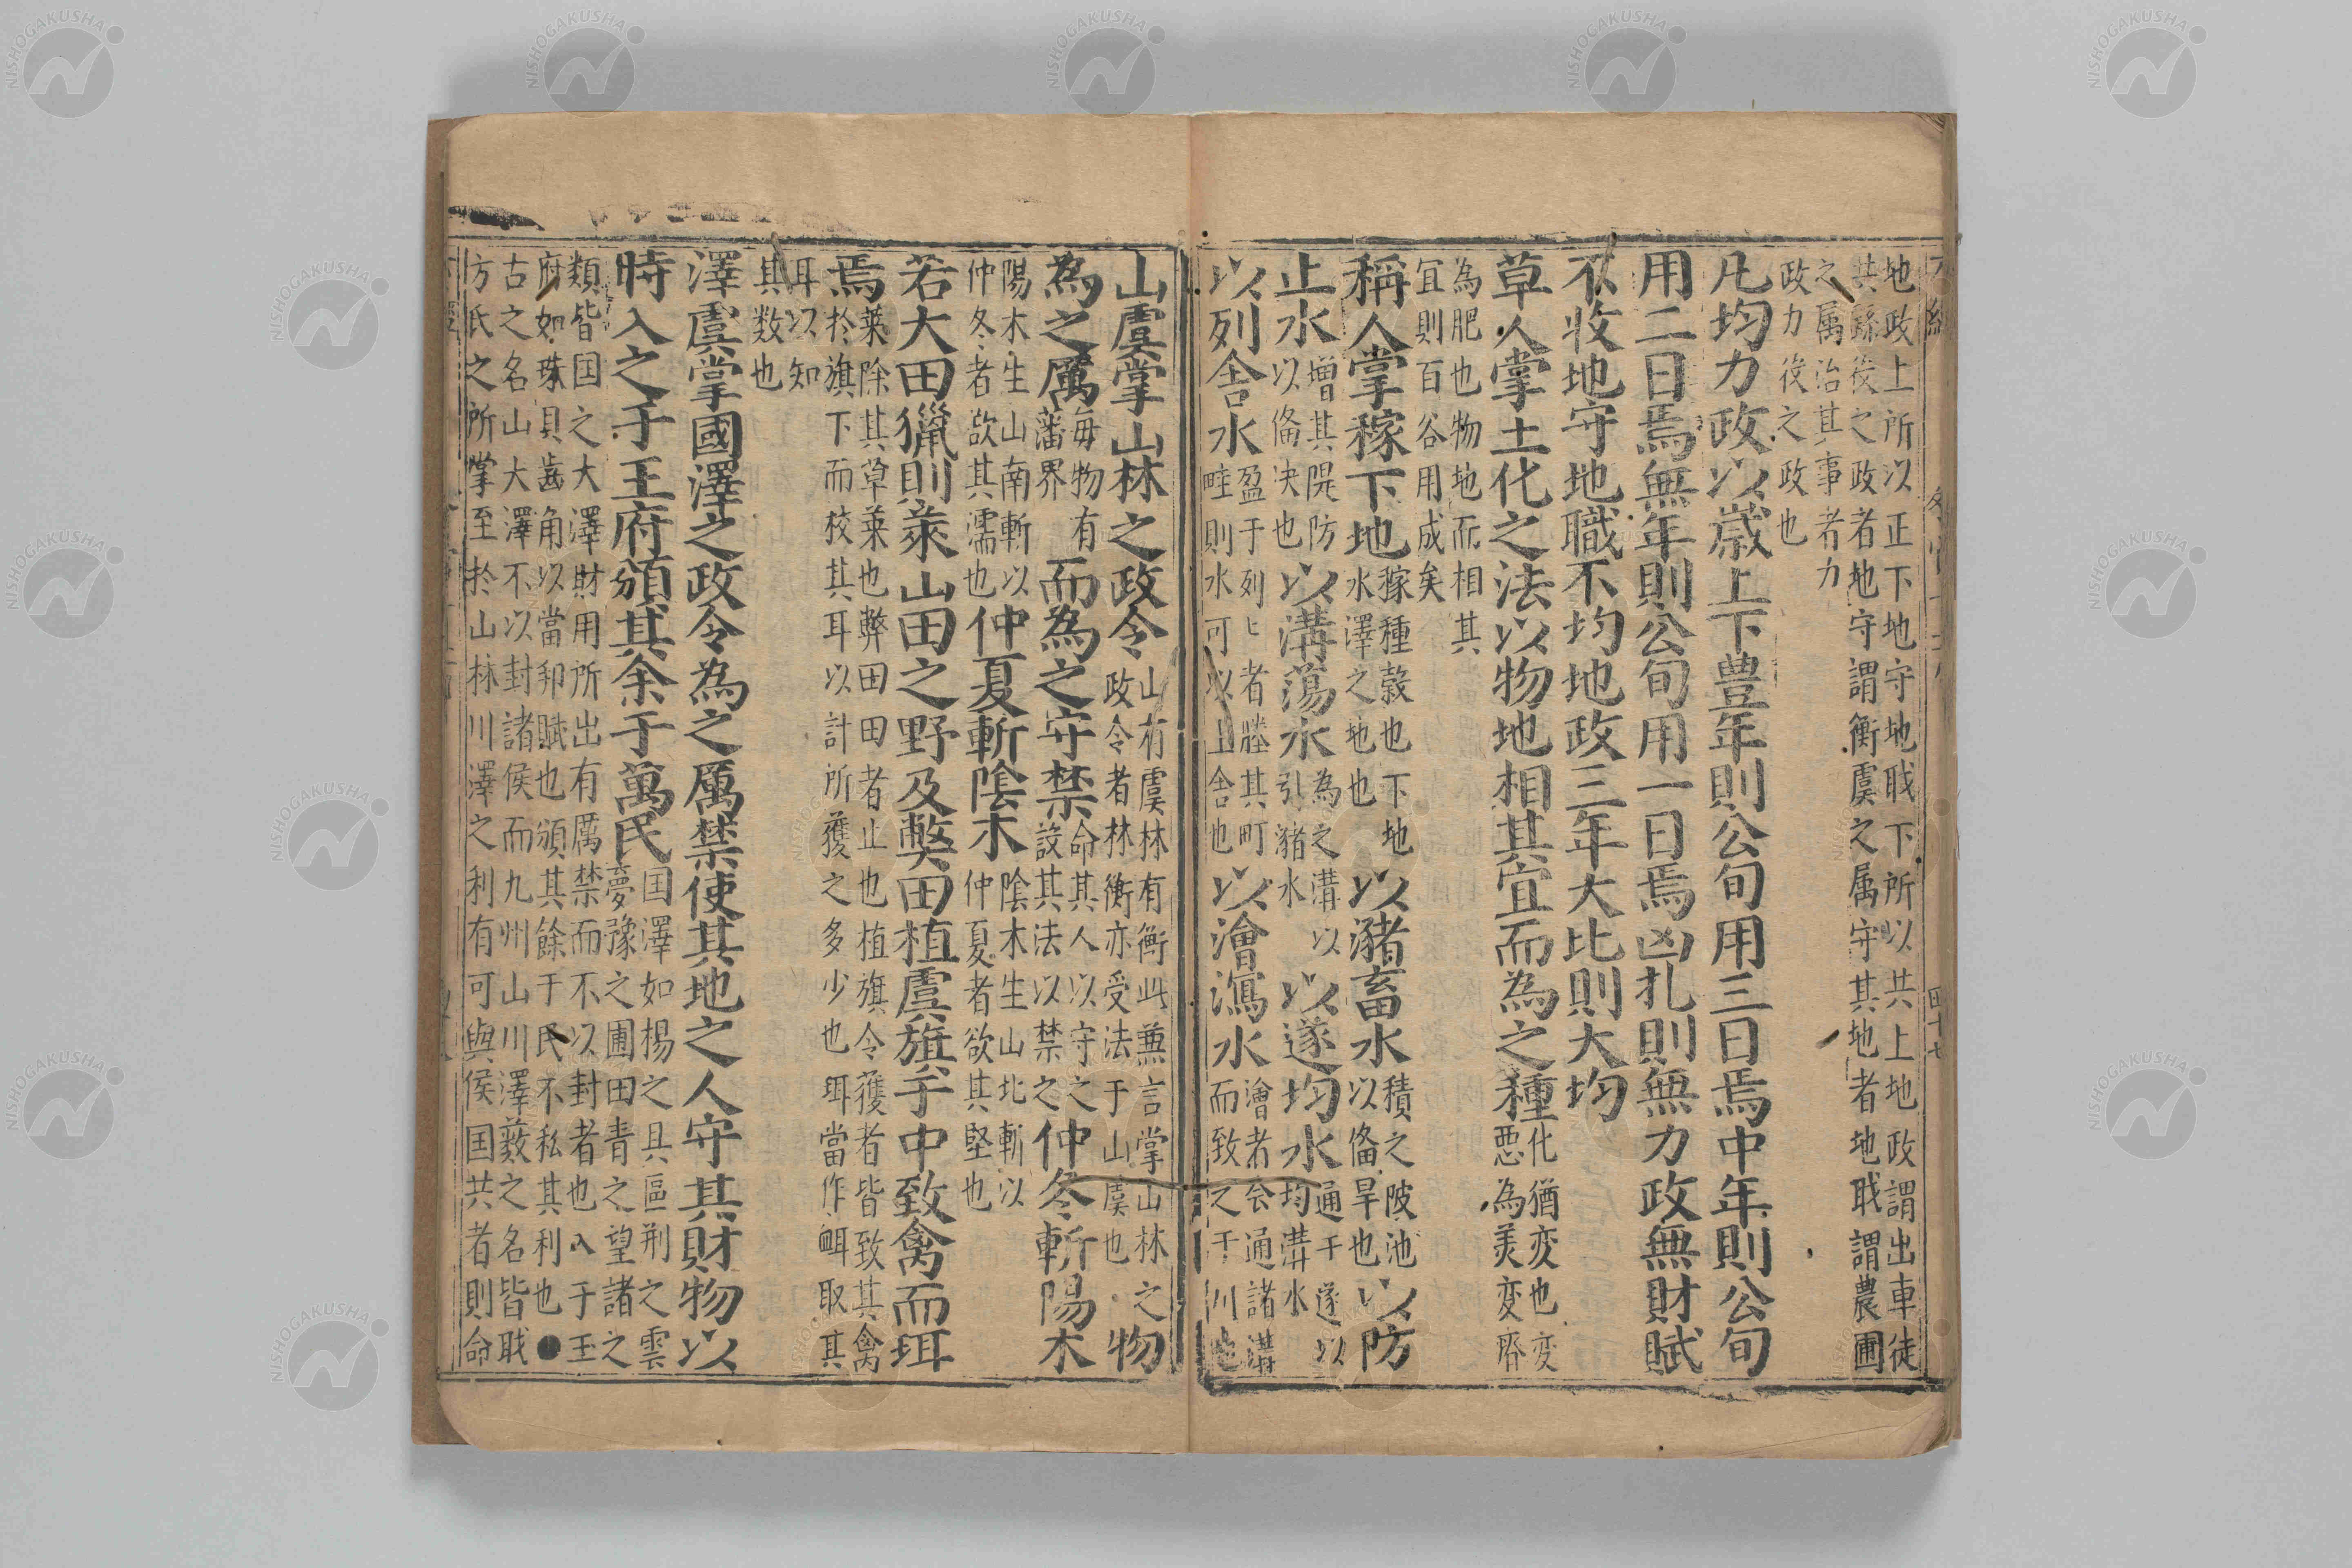 地政上所以正下地守地戝下所以共上地政謂出車徒
其繇役之政者地守謂衡虞之属守其地者地戝謂農圃
之属治其事者力
政力役之政也
凢均力政以歳上下豊年則公旬用三日焉中年則公旬
用二日焉無年則公旬用一日焉凶札則無力政無財賦
不收地守地職不均地政三年大比則大均
草人掌土化之法以物地相其宜而為之種
化猶变也变
悪為羙变瘠
為肥也物地而相其
宜則百谷用成矣
稱人掌稼下地
稼種穀也下地
水澤之地也
以瀦畜水
積之陂池
以偹旱也
以防
止水
增其隄防
以偹决也
以溝蕩水
為之溝以
引瀦水
以遂均水
通于遂以
均溝水
以列舎水
盈于列匕者塍其町
畦則水可以止舎也
以澮瀉水
澮者会通諸溝
而致之于川
山虞掌山林之政令
山有虞林有衡此兼言掌山林之物
政令者林衡亦受法于山虞也
物
為之厲
毎物有
藩界
而為之守禁
命其人以守之
設其法以禁之
仲冬斬陽木
陽木生山南斬以
仲冬者欲其濡也
仲夏斬陰木
陰木生山北斬以
仲夏者欲其堅也
若大田獵則萊山田之野及獘田植虞旗于中致禽而珥
焉
萊除其草萊也弊田田者止也植旗令獲者皆致其禽
於旗下而校其耳以計所獲之多少也珥當作衈取其
耳以知
其数也
澤虞掌國澤之政令為之厲禁使其地之人守其財物以
時入之于王府頒其余于萬民
囯澤如楊之具區荆之雲
夢豫之圃田青之望諸之
類皆囯之大澤財用所出有厲禁而不以封者也入于玉
府如珠貝齒角以當邦賦也頒其餘于民不私其利也●
古之名山大澤不以封諸侯而九州山川澤薮之名皆戝
方氏之所掌至於山林川澤之利有可與侯囯共者則命
四十七
NISHOGAKUSHA